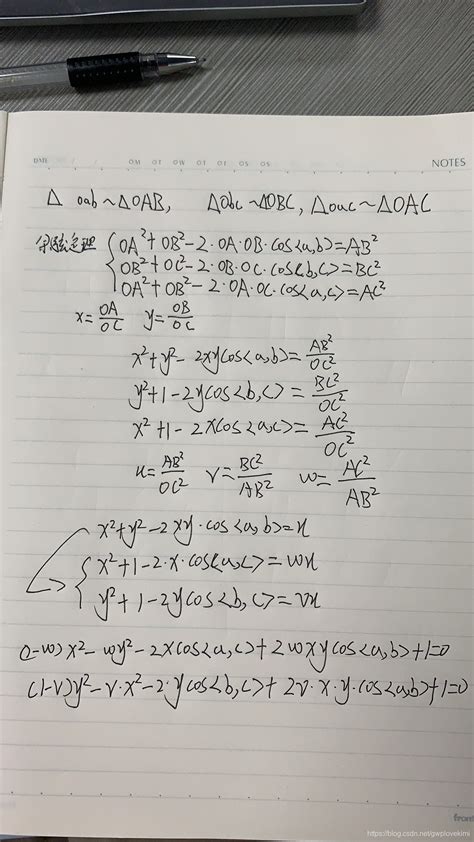 DATE / / OM OT OW OT OF OS OS NOTES
△ oab ~ △OAB, △obc ~ △OBC, △oac ~ △OAC
余弦定理 { OA² + OB² - 2·OA·OB·cos<a,b> = AB²
OB² + OC² - 2·OB·OC·cos<b,c> = BC²
OA² + OB² - 2·OA·OC·cos<a,c> = AC²
x = OA/OC y = OB/OC
x² + y² - 2xycos<a,b> = AB²/OC²
y² + 1 - 2ycos<b,c> = BC²/OC²
x² + 1 - 2xcos<a,c> = AC²/OC²
u = AB²/OC² v = BC²/AB² w = AC²/AB²
x² + y² - 2xy·cos<a,b> = u
{ x² + 1 - 2·x·cos<a,c> = wu
y² + 1 - 2ycos<b,c> = vu
(1-w)x² - wy² - 2xcos<a,c> + 2wxycos<a,b> + 1 = 0
(1-v)y² - v·x² - 2·ycos<b,c> + 2v·x·y·cos<a,b> + 1 = 0
front
https://blog.csdn.net/gwplovekimi